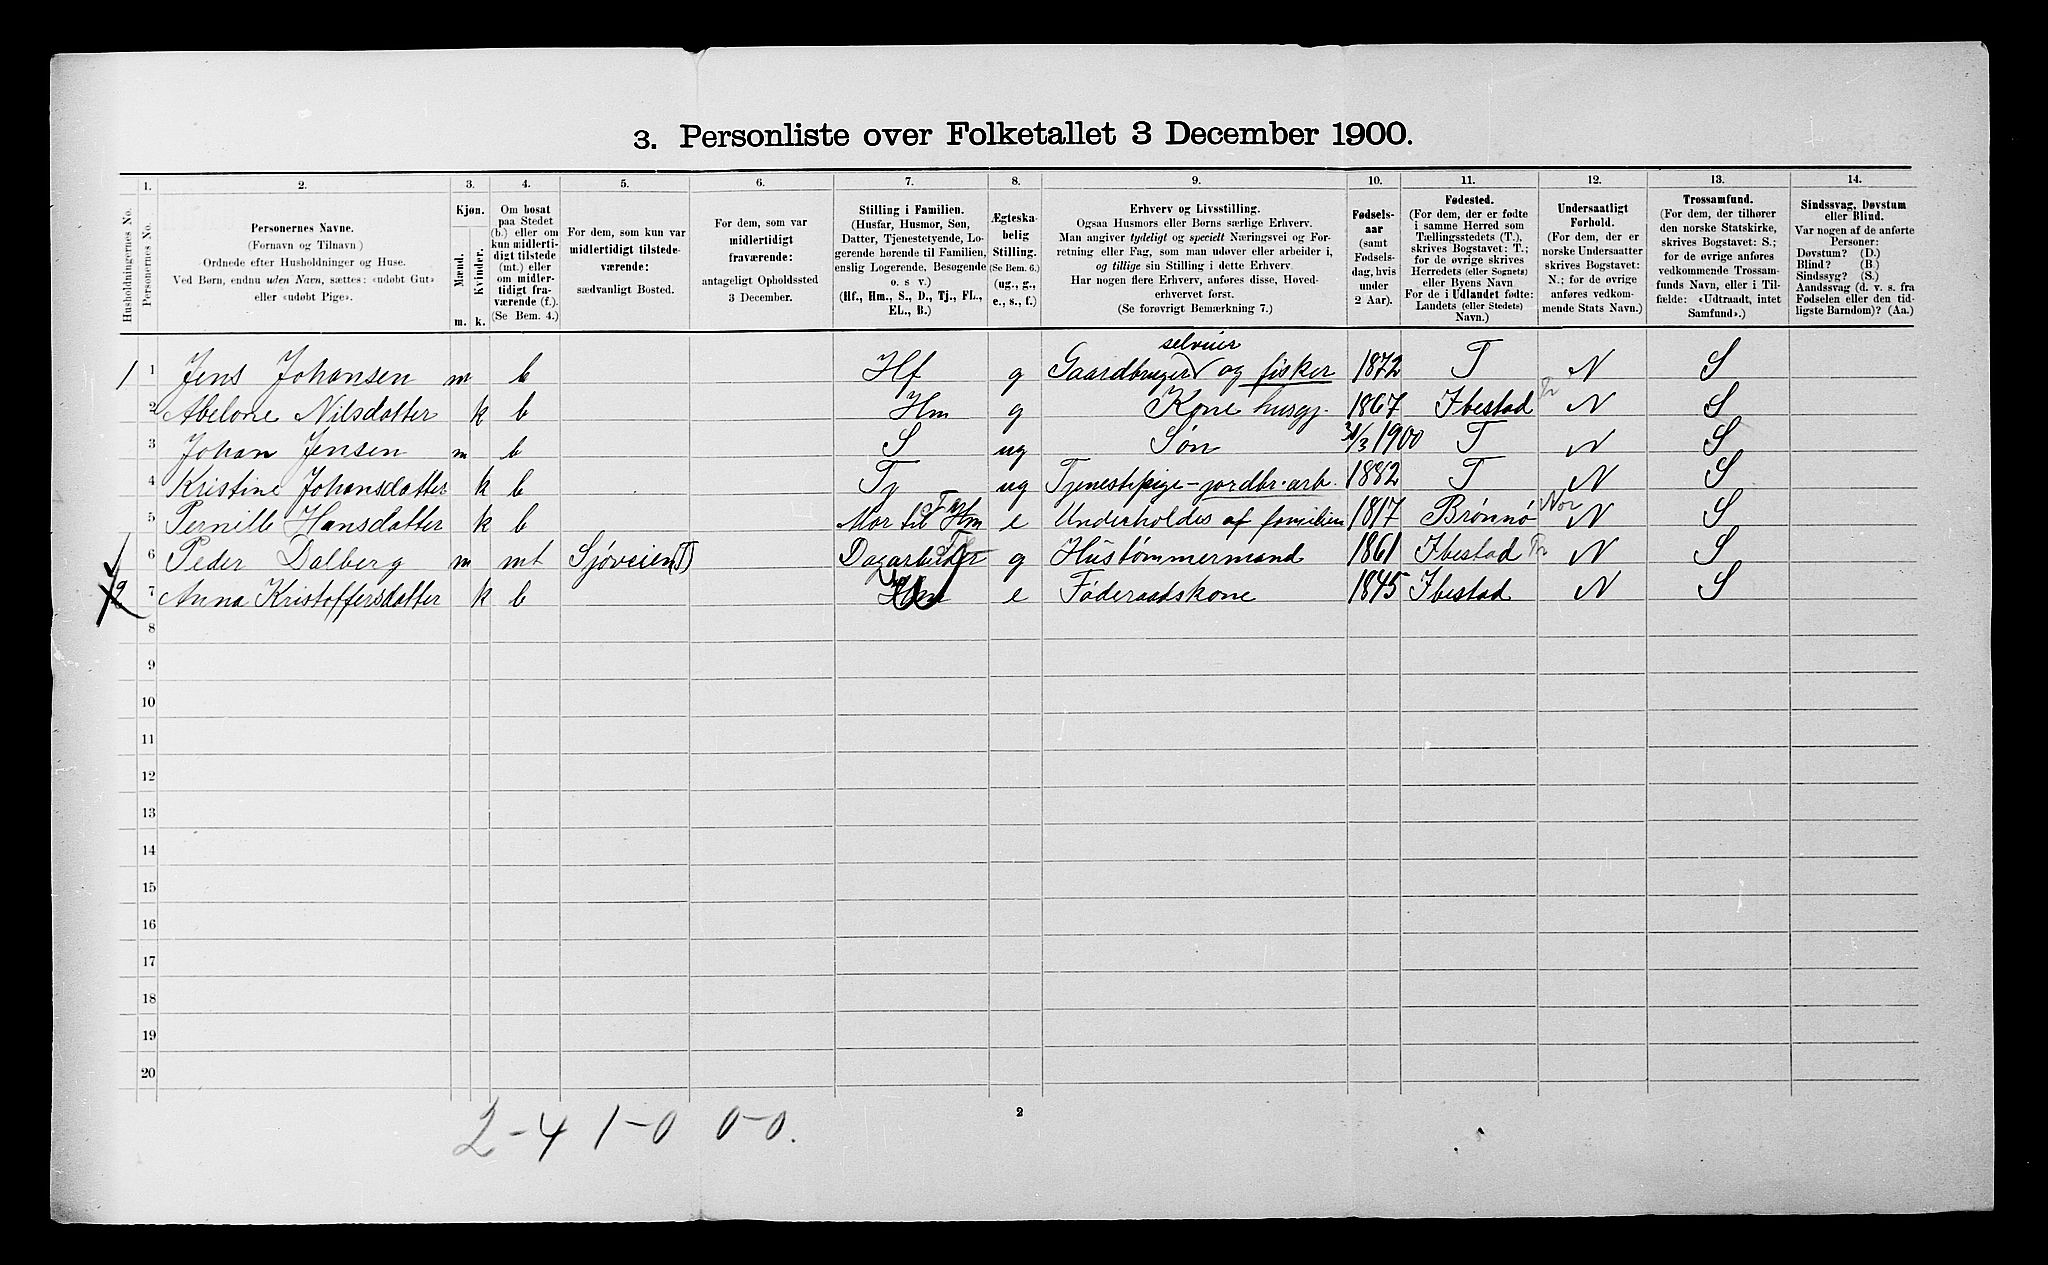 3. Personliste over Folketallet 3 December 1900.
1. 2. 3. 4. 5. 6. 7. 8. 9. 10. 11. 12. 13. 14.
Husholdningernes No.
Personernes No.
Personernes Navne.
(Fornavn og Tilnavn)
Ordnede efter Husholdninger og Huse.
Ved Børn, endnu uden Navn, sættes: «udøbt Gut»
eller «udøbt Pige».
Kjøn.
Mænd.
Kvinder.
m. k.
Om bosat
paa Stedet
(b.) eller om
kun midlerti-
digt tilstede
(mt.) eller
om midler-
tidigt fra-
værende (f.).
(Se Bem. 4.)
For dem, som kun var
midlertidigt tilstede-
værende:
sædvanligt Bosted.
For dem, som var
midlertidigt
fraværende:
antageligt Opholdssted
3 December.
Stilling i Familien.
(Husfar, Husmor, Søn,
Datter, Tjenestetyende, Lo-
gerende hørende til Familien,
enslig Logerende, Besøgende
o. s. v.)
(Hf., Hm., S., D., Tj., FL.,
EL., B.)
Ægteska-
belig
Stilling.
(Se Bem. 6.)
(ug., g.,
e., s., f.)
Erhverv og Livsstilling.
Ogsaa Husmors eller Børns særlige Erhverv.
Man angiver tydeligt og specielt Næringsvei og For-
retning eller Fag, som man udøver eller arbeider i,
og tillige sin Stilling i dette Erhverv.
Har nogen flere Erhverv, anføres disse, Hoved-
erhvervet først.
(Se forøvrigt Bemærkning 7.)
Fødsels-
aar
(samt
Fødsels-
dag, hvis
under
2 Aar).
Fødested.
(For dem, der er fødte
i samme Herred som
Tællingsstedets (T.),
skrives Bogstavet: T.;
for de øvrige skrives
Herredets (eller Sognets)
eller Byens Navn
For de i Udlandet fødte:
Landets (eller Stedets)
Navn.)
Undersaatligt
Forhold.
(For dem, der er
norske Undersaatter
skrives Bogstavet:
N.; for de øvrige
anføres vedkom-
mende Stats Navn.)
Trossamfund.
(For dem, der tilhører
den norske Statskirke,
skrives Bogstavet: S.;
for de øvrige anføres
vedkommende Trossam-
funds Navn, eller i Til-
fælde: «Udtraadt, intet
Samfund».)
Sindssvag, Døvstum
eller Blind.
Var nogen af de anførte
Personer:
Døvstum? (D.)
Blind? (B.)
Sindssyg? (S.)
Aandssvag (d. v. s. fra
Fødselen eller den tid-
ligste Barndom)? (Aa.)
selveier
1 1 Jens Johansen m b Hf g Gaardbruger og fisker 1872 T N S
2 Abelone Nilsdatter k b Hm g Kone husgj. 1867 Ibestad Tr N S
3 Johan Jensen m b S ug Søn 31/3 1900 T N S
4 Kristine Johansdatter k b Tj ug Tjenestepige - jordbr. arb. 1882 T N S
5 Pernille Hansdatter k b Mor til Hm e Underholdes af familien 1817 Brønnø Nor N S
6 Peder Dalberg m mt Sjøveien (T) Dagarbeider g Hustømmermand 1861 Ibestad Tr N S
2 7 Anna Kristoffersdatter k b Hm e Føderaadskone 1845 Ibestad N S
8
9
10
11
12
13
14
15
16
17
18
19
20
2
2-4 1-0 0-0.